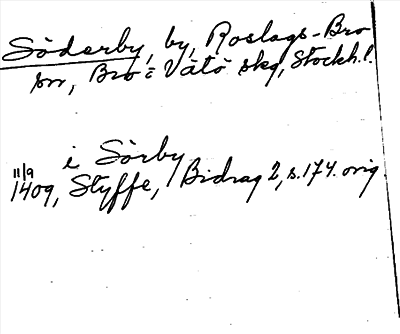 Söderby, by, Roslags-Bro
sn, Bro o Vätö skg, Stockh. l.
i Sörby
11/9 1409, Styffe, Bidrag 2, s. 174. orig.